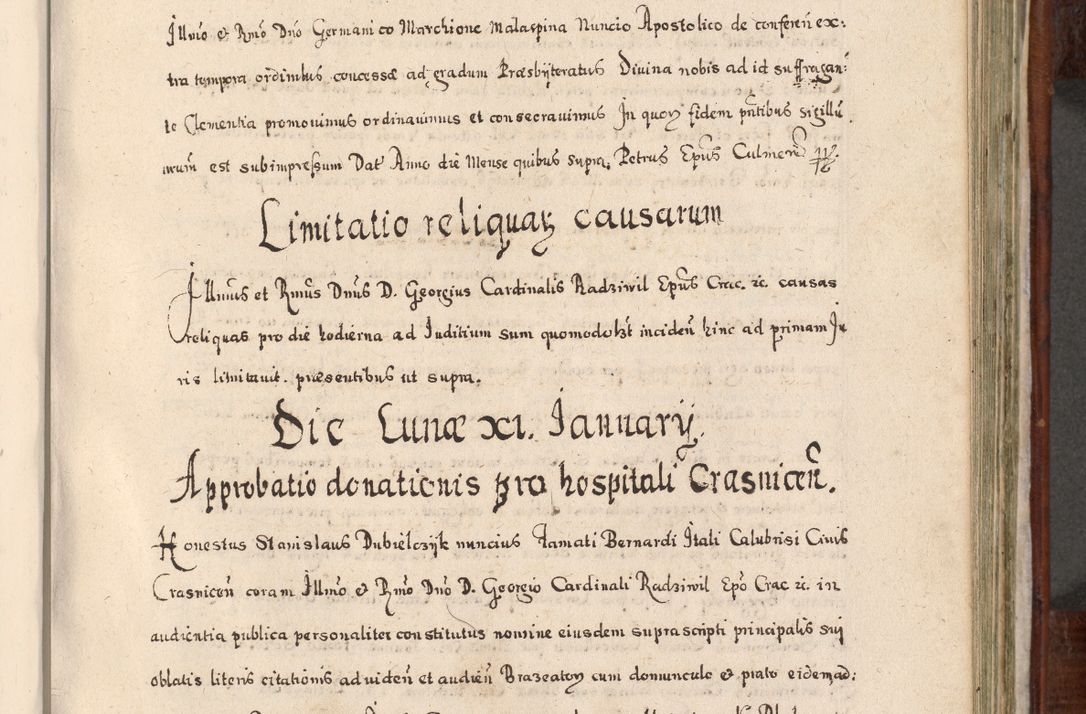 Illmo et Rmo Dno Germanico Marchione Malaspina Nuncio Apostolico de conferen ex:
tra tempora ordinibus concessæ ad gradum Præsbÿteratus Divina nobis ad id suffragan:
te Clementia promovimus ordinavimus et consecravimus In quorum fidem pntibus sigillu
nrum est subimpressum Dat Anno die Mense quibus supra. Petrus Epus Culmen
Limitatio reliquarum causarum
Illmus et Rmus Dnus D. Georgius Cardinalis Radziwil Epus Crac. zc. causas
reliquas pro die hodierna ad Iuditium sum quomodolzt inciden hinc ad primam Iu
ris limitavit. præsentibus ut supra.
Die Lunæ XI. Ianuarÿ.
Approbatio donationis pro hospitali Crasnicen.
Honestus Stanislaus Dubielczÿk nuncius Famati Bernardi Itali Calubrisi Civis
Crasnicen coram Illmo et Rmo Dno D. Georgio Cardinali Radziwil Epo Crac zc. in
audientia publica personaliter constitutus nomine eiusdem suprascripti principalis sui
oblatis literis citationis ad viden et audien Brazeatory cum domunculo et prato eidem ad: